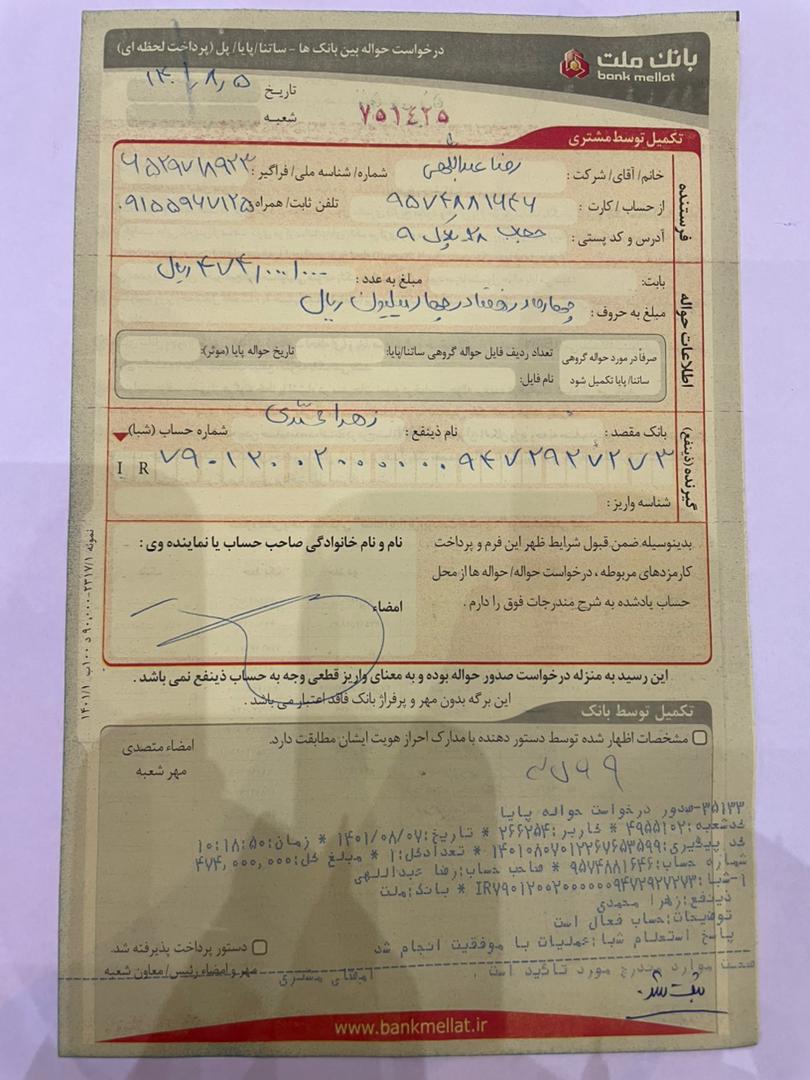 درخواست حواله بین بانک ها - ساتنا/پایا/ پل (پرداخت لحظه ای)
بانک ملت
bank mellat
تاریخ
شعبه
۷۵۱۴۲۵
تکمیل توسط مشتری
فرستنده
خانم/ آقای/ شرکت : رضا عبداللهی شماره/ شناسه ملی/ فراگیر :
از حساب / کارت : ۹۵۷۴۸۸۱۶۴۶ تلفن ثابت/ همراه : ۰۹۱۵۵۹۶۷۱۲۵
آدرس و کد پستی : ۲۸ پلاک ۹
اطلاعات حواله
بابت: مبلغ به عدد : ۴۷۴,۰۰۰,۰۰۰ ریال
مبلغ به حروف : چهارصد و هفتاد و چهار میلیون ریال
صرفاً در مورد حواله گروهی ساتنا/ پایا تکمیل شود
تعداد ردیف فایل حواله گروهی ساتنا/پایا: تاریخ حواله پایا (موثر):
نام فایل:
گیرنده (ذینفع)
بانک مقصد : نام ذینفع : زهرا محمدی شماره حساب (شبا)
IR ۷۹۰۱۲۰۰۲۰۰۰۰۰۰۹۴۷۲۹۲۷۲۷۳
شناسه واریز :
بدینوسیله ضمن قبول شرایط ظهر این فرم و پرداخت
کارمزدهای مربوطه ، درخواست حواله/ حواله ها از محل
حساب یادشده به شرح مندرجات فوق را دارم .
نام و نام خانوادگی صاحب حساب یا نماینده وی :
امضاء
این رسید به منزله درخواست صدور حواله بوده و به معنای واریز قطعی وجه به حساب ذینفع نمی باشد .
این برگه بدون مهر و پرفراژ بانک فاقد اعتبار می باشد .
تکمیل توسط بانک
مشخصات اظهار شده توسط دستور دهنده با مدارک احراز هویت ایشان مطابقت دارد.
امضاء متصدی
مهر شعبه
۳۵۱۳۳-صدور درخواست حواله پایا
کدشعبه:۴۹۵۵۱۰۲ * کاربر:۲۶۶۲۵۴ * تاریخ:۱۴۰۱/۰۸/۰۷ * زمان:۱۰:۱۸:۵۰
کد پیگیری:۱۴۰۱۰۸۰۷۰۱۲۲۶۷۶۵۳۵۹۹ * تعدادکل:۱ * مبلغ کل:۴۷۴,۰۰۰,۰۰۰
شماره حساب:۹۵۷۴۸۸۱۶۴۶ * صاحب حساب:رضا عبداللهی
۱-شبا:IR۷۹۰۱۲۰۰۲۰۰۰۰۰۰۹۴۷۲۹۲۷۲۷۳ * بانک:ملت
ذینفع:زهرا محمدی
توضیحات:حساب فعال است
پاسخ استعلام شبا:عملیات با موفقیت انجام شد
صحت موارد مندرج مورد تائید است . امضای مشتری
دستور پرداخت پذیرفته شد.
مهر و امضاء رئیس/ معاون شعبه
ثبت شد.
www.bankmellat.ir